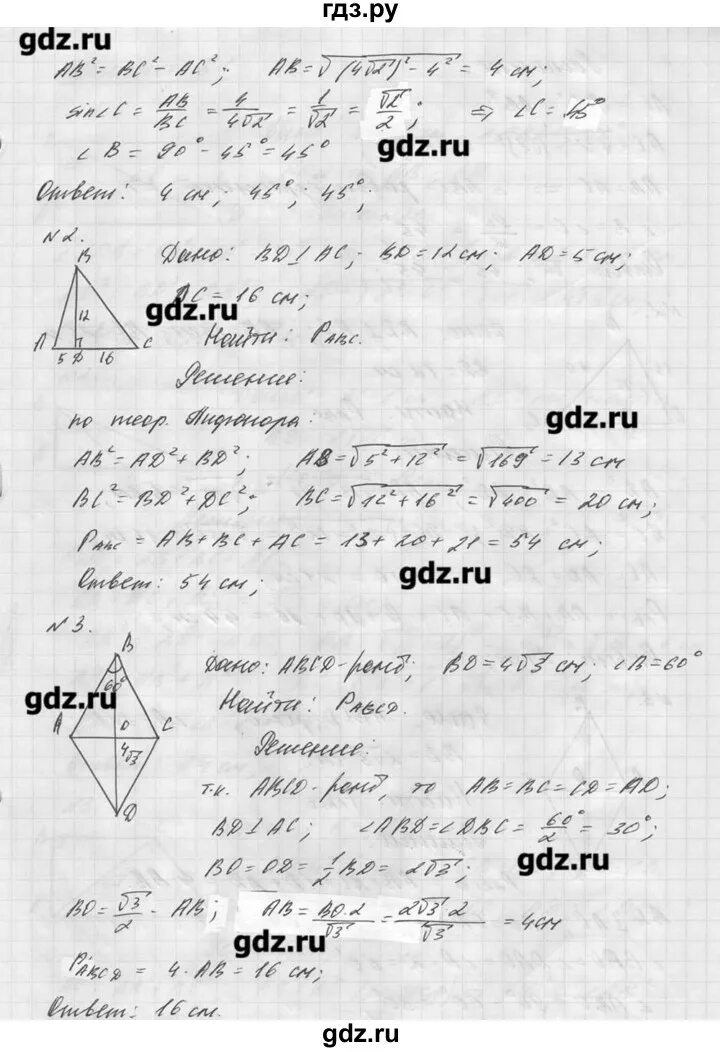 гдз.ру
gdz.ru
AB² = BC² - AC²; AB = √(4√2)² - 4² = 4 см;
sin∠C = AB/BC = 4/4√2 = 1/√2 = √2/2; ⇒ ∠C = 45°
∠B = 90° - 45° = 45°
gdz.ru
Ответ: 4 см; 45°; 45°;
№2.
B
Дано: BD⊥AC; BD = 12 см; AD = 5 см;
DC = 16 см;
gdz.ru
12
A 5 D 16 C
Найти: P_ABC.
Решение:
по теор. Пифагора:
gdz.ru
AB² = AD² + BD²; AB = √5² + 12² = √169 = 13 см
BC² = BD² + DC²; BC = √12² + 16² = √400 = 20 см;
P_ABC = AB + BC + AC = 13 + 20 + 21 = 54 см;
gdz.ru
Ответ: 54 см;
№3.
B
60°
Дано: ABCD - ромб; BD = 4√3 см; ∠B = 60°
gdz.ru
Найти: P_ABCD.
A O C
4√3
D
Решение:
т.к. ABCD - ромб, то AB = BC = CD = AD;
BD⊥AC; ∠ABD = ∠DBC = 60°/2 = 30°;
gdz.ru
BO = OD = 1/2 BD = 2√3;
BO = √3/2 · AB; AB = BO·2/√3 = 2√3·2/√3 = 4 см
gdz.ru
P_ABCD = 4·AB = 16 см;
Ответ: 16 см.
gdz.ru